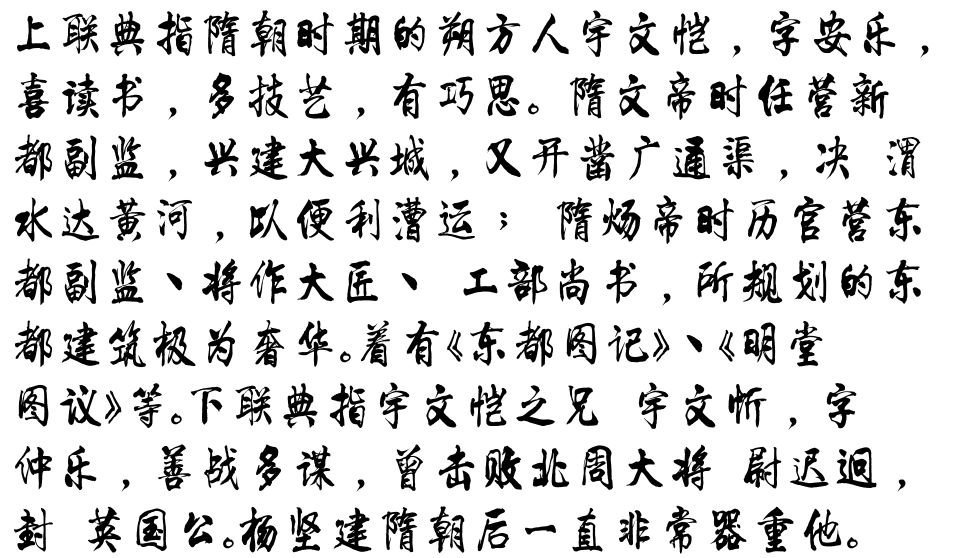 上联典指隋朝时期的朔方人宇文恺，字安乐，
喜读书，多技艺，有巧思。隋文帝时任营新
都副监，兴建大兴城，又开凿广通渠，决 渭
水达黄河，以便利漕运； 隋炀帝时历官营东
都副监、将作大匠、 工部尚书，所规划的东
都建筑极为奢华。着有《东都图记》、《明堂
图议》等。下联典指宇文恺之兄 宇文忻，字
仲乐，善战多谋，曾击败北周大将 尉迟迥，
封 英国公。杨坚建隋朝后一直非常器重他。